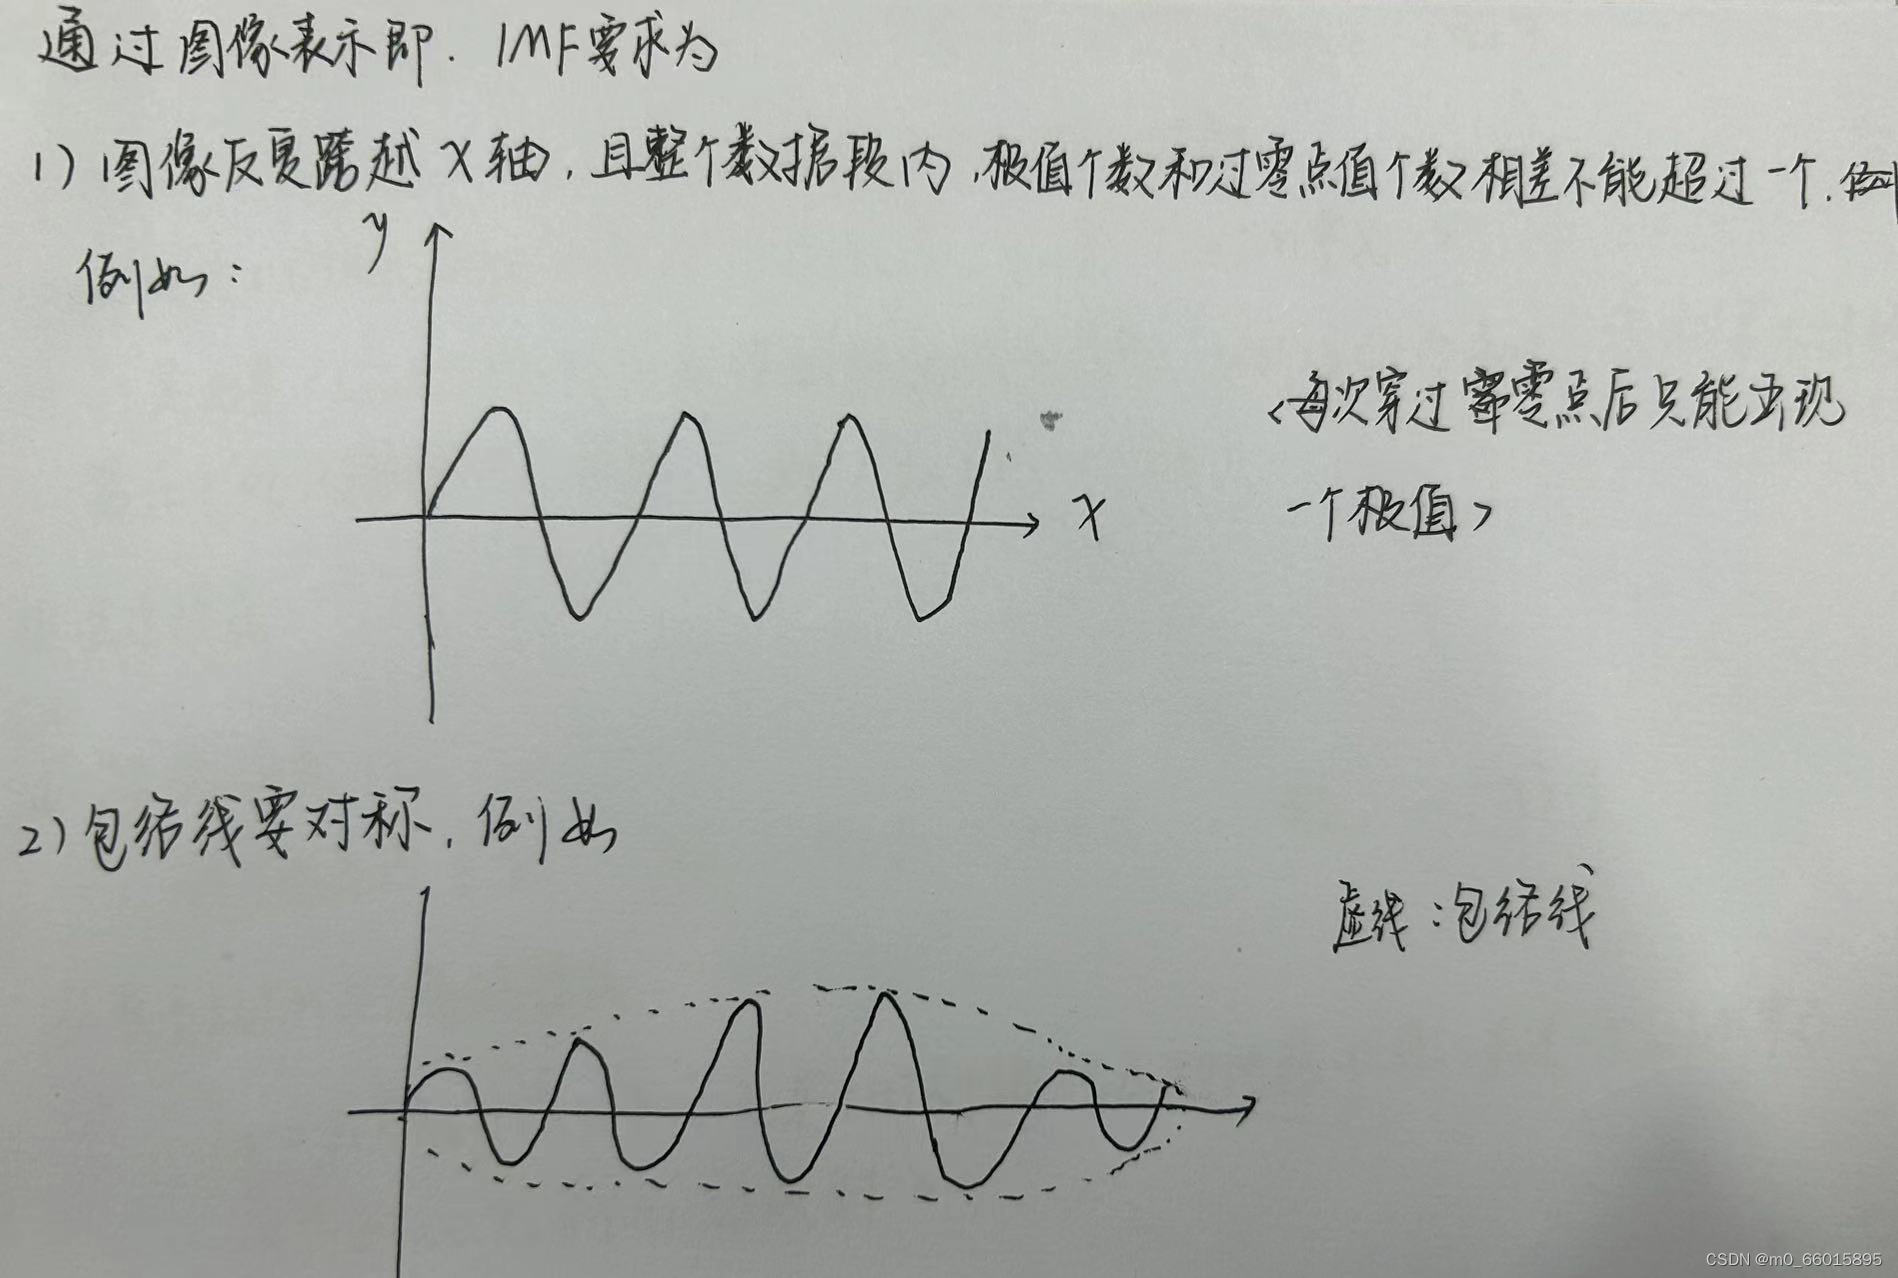 通过图像表示即. IMF要求为
1) 图像反复跨越X轴, 且整个数据段内, 极值个数和过零点值个数相差不能超过一个.
例如:
y
<每次穿过零点后只能出现
一个极值>
x
2) 包络线要对称, 例如
虚线: 包络线
CSDN @m0_66015895